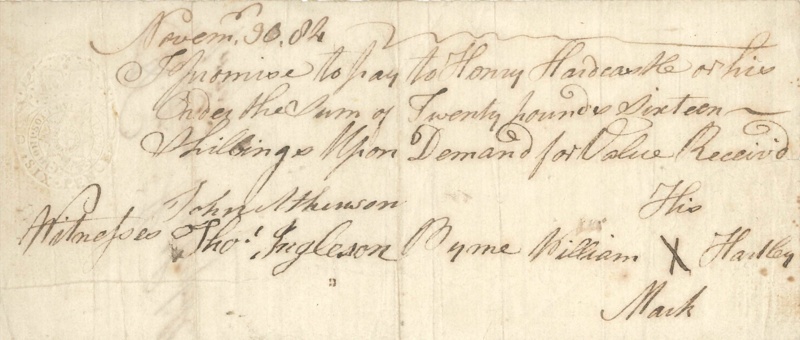 Novemr. 30. 84
I promise to pay to Henry Hardcastle or his
Order the Sum of Twenty pounds Sixteen
Shillings Upon Demand for Value Received
John Atkinson His
Witnesses Thos. Ingleson By me William X Hartley
Mark